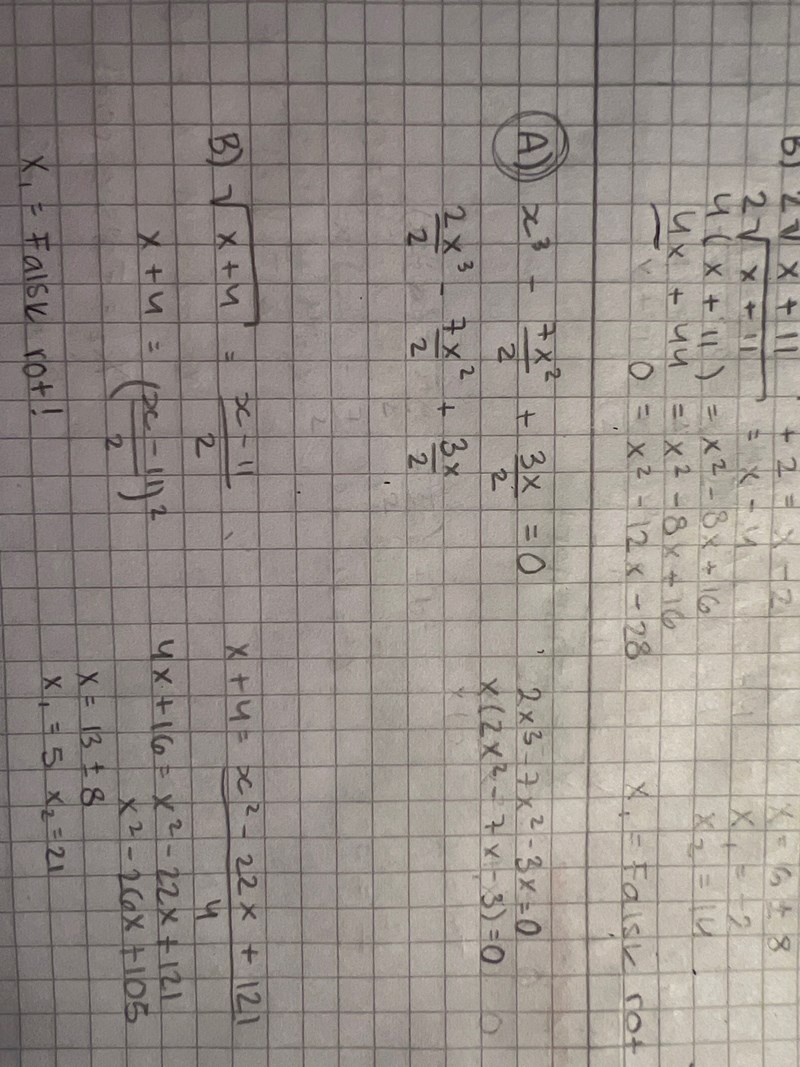 B) 2√x + 11 + 2 = x - 2
2√x + 11 = x - 4
4(x + 11) = x² - 8x + 16
4x + 44 = x² - 8x + 16
0 = x² - 12x - 28
x = 6 ± 8
x₁ = -2
x₂ = 14
x₁ = Falsk rot
A) x³ - 7x²/2 + 3x/2 = 0
2x³/2 - 7x²/2 + 3x/2
2x³ - 7x² - 3x = 0
x(2x² - 7x - 3) = 0
B) √x + 4 = x - 11/2
x + 4 = (x - 11/2)²
x₁ = Falsk rot!
x + 4 = x² - 22x + 121/4
4x + 16 = x² - 22x + 121
x² - 26x + 105
x = 13 ± 8
x₁ = 5 x₂ = 21